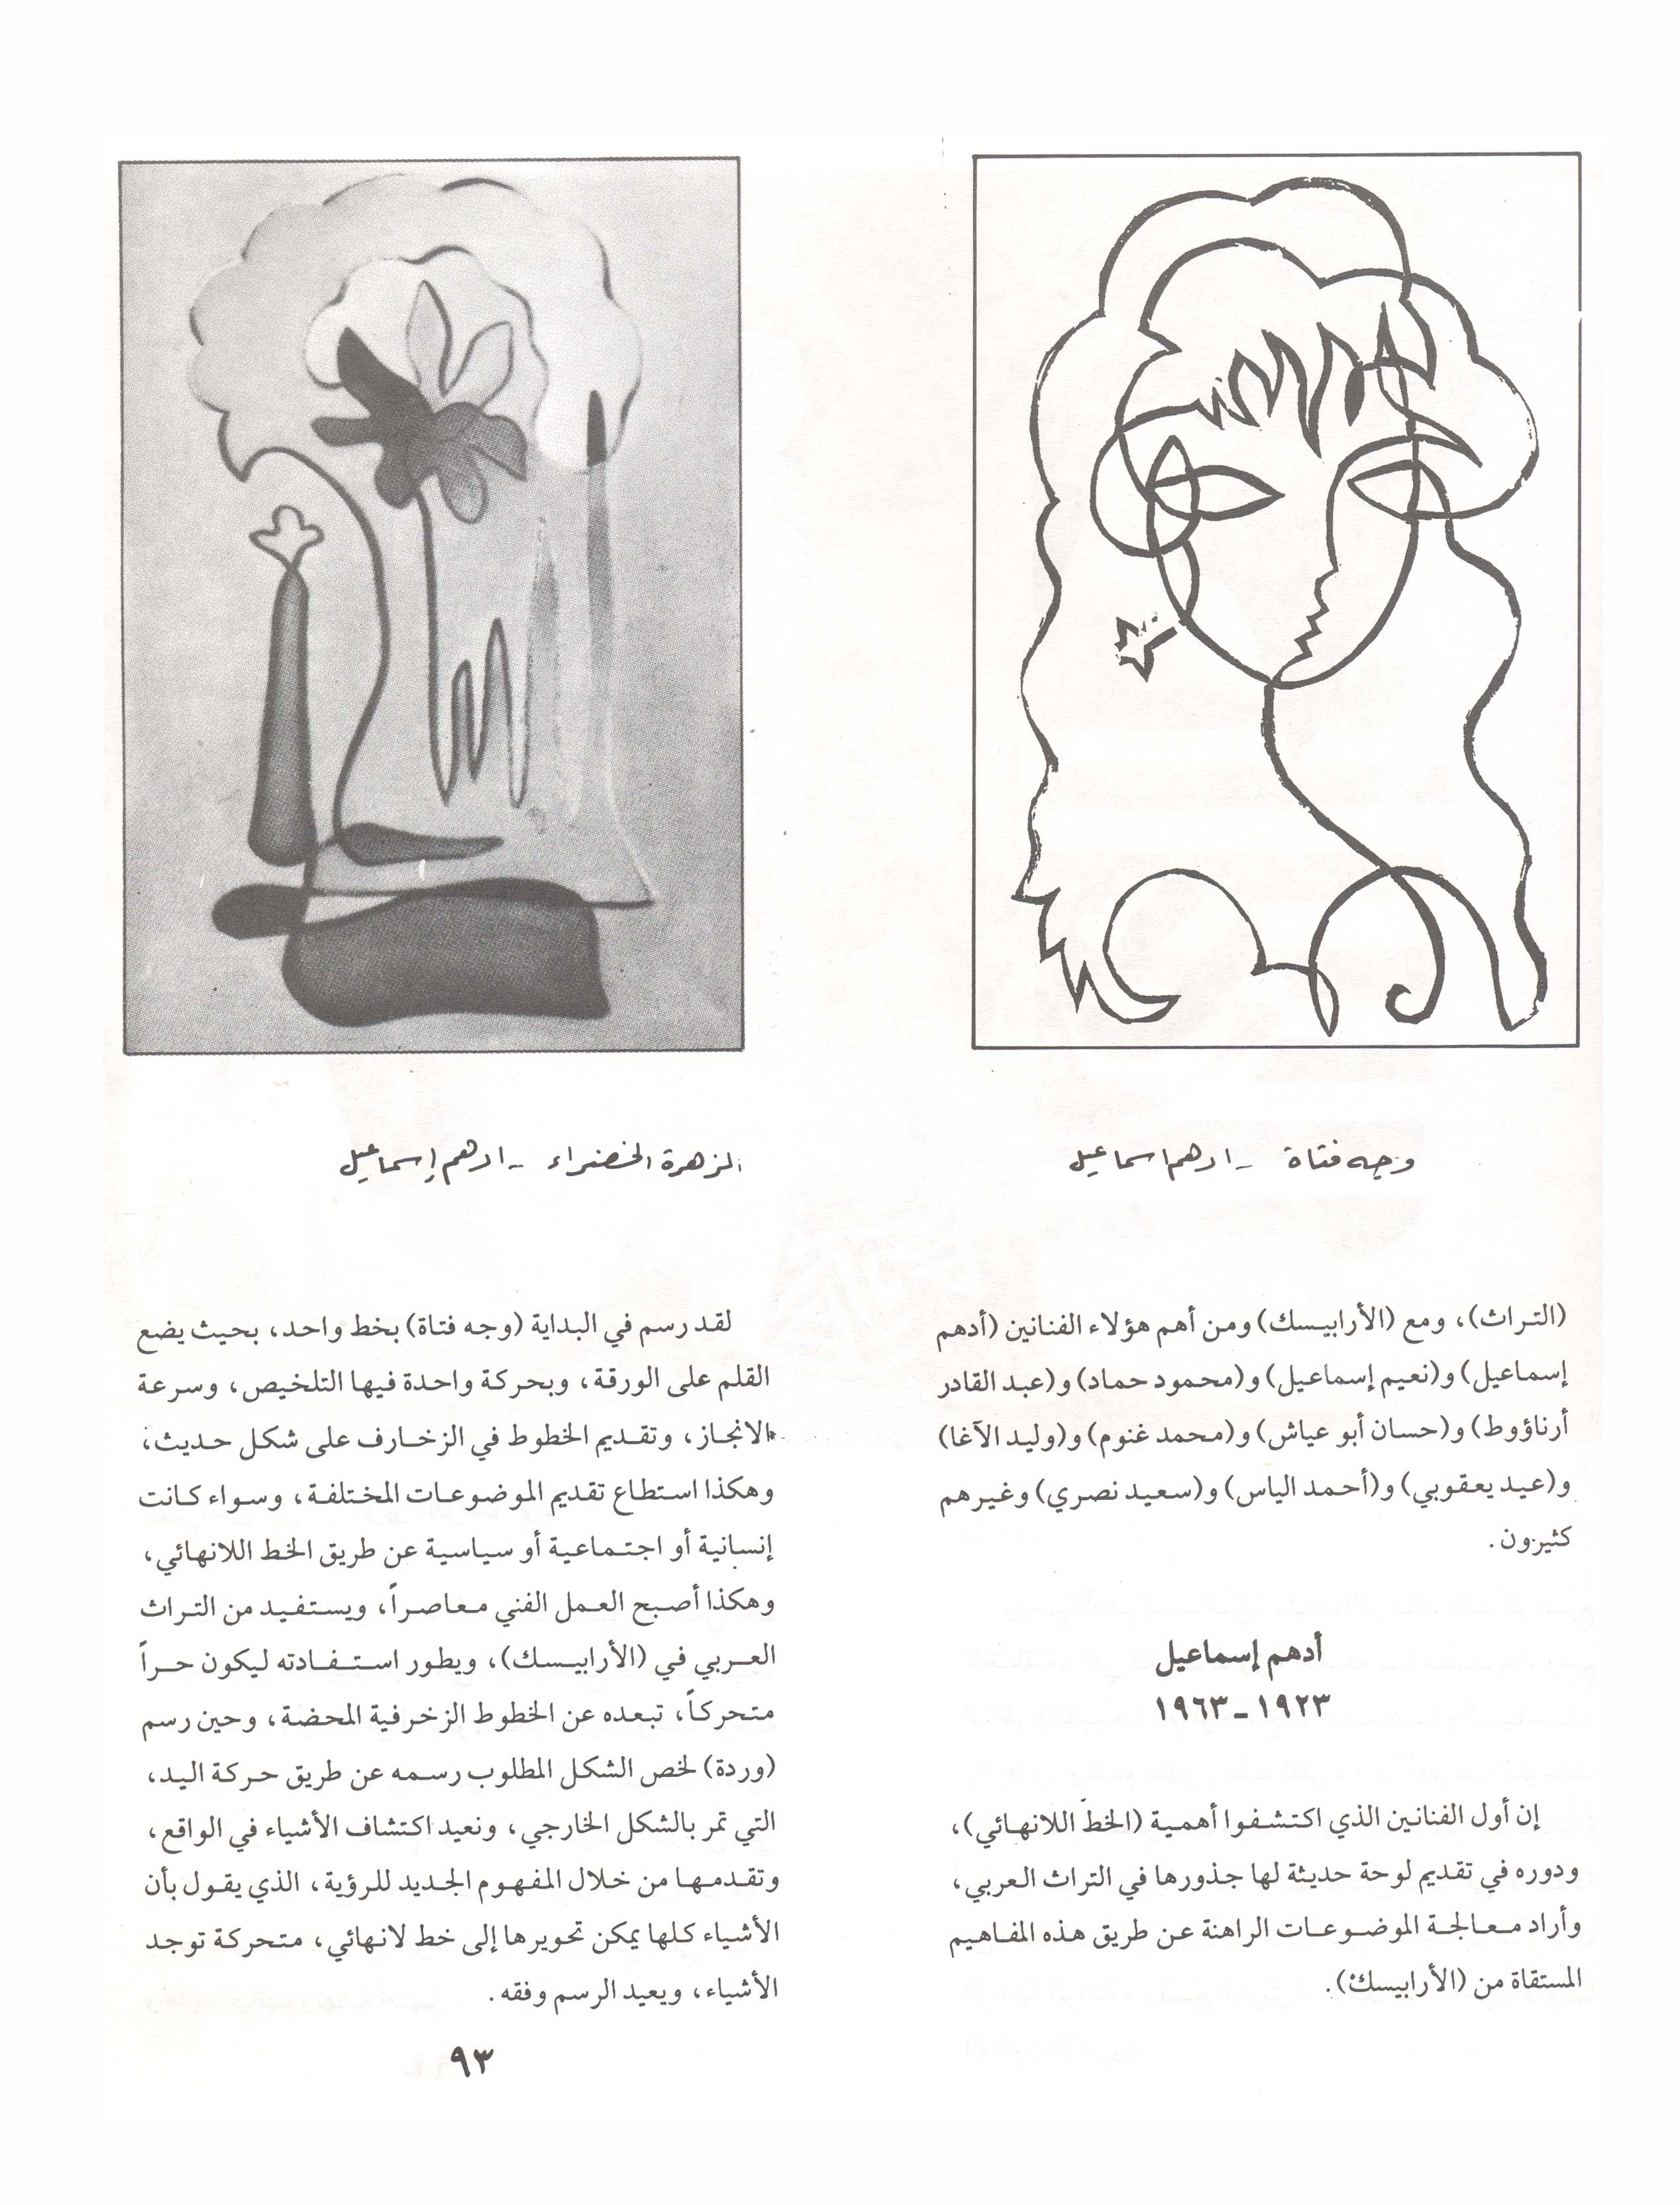 وجه فتاة - ادهم اسماعيل
الزهرة الخضراء - ادهم إسماعيل
(التراث)، ومع (الأرابيسك) ومن أهم هؤلاء الفنانين (أدهم
إسماعيل) و(نعيم إسماعيل) و(محمود حماد) و(عبد القادر
أرناؤوط) و(حسان أبو عياش) و(محمد غنوم) و(وليد الآغا)
و(عيد يعقوبي) و(أحمد الياس) و(سعيد نصري) وغيرهم
كثيرون.
أدهم إسماعيل
١٩٢٣ - ١٩٦٣
إن أول الفنانين الذي اكتشفوا أهمية (الخط اللانهائي)،
ودوره في تقديم لوحة حديثة لها جذورها في التراث العربي،
وأراد معالجة الموضوعات الراهنة عن طريق هذه المفاهيم
المستقاة من (الأرابيسك).
لقد رسم في البداية (وجه فتاة) بخط واحد، بحيث يضع
القلم على الورقة، وبحركة واحدة فيها التلخيص، وسرعة
الانجاز، وتقديم الخطوط في الزخارف على شكل حديث،
وهكذا استطاع تقديم الموضوعات المختلفة، وسواء كانت
إنسانية أو اجتماعية أو سياسية عن طريق الخط اللانهائي،
وهكذا أصبح العمل الفني معاصراً، ويستفيد من التراث
العربي في (الأرابيسك)، ويطور استفادته ليكون حراً
متحركاً، تبعده عن الخطوط الزخرفية المحضة، وحين رسم
(وردة) لخص الشكل المطلوب رسمه عن طريق حركة اليد،
التي تمر بالشكل الخارجي، ونعيد اكتشاف الأشياء في الواقع،
وتقدمها من خلال المفهوم الجديد للرؤية، الذي يقول بأن
الأشياء كلها يمكن تحويرها إلى خط لانهائي، متحركة توجد
الأشياء، ويعيد الرسم وفقه.
٩٣